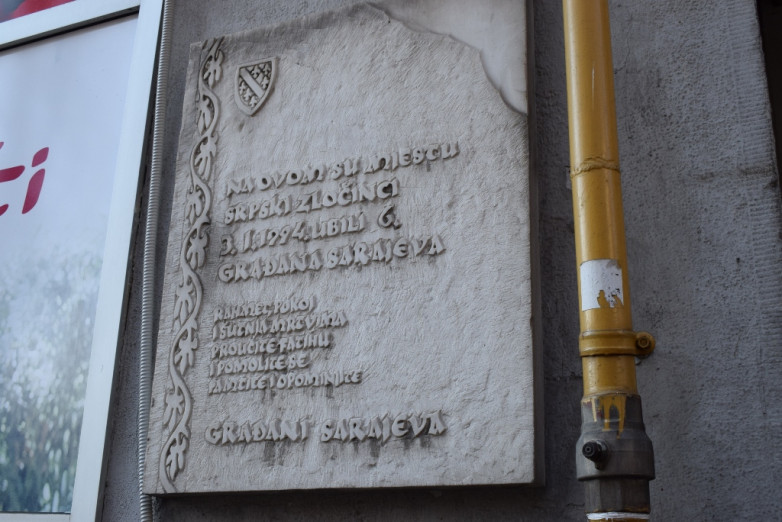 NA OVOM SU MJESTU
SRPSKI ZLOČINCI
3. 1. 1994. UBILI 6.
GRAĐANA SARAJEVA
RAHMET, POKOJ
I ŠUTNJA MRTVIMA
PROUČITE FATIHU
I POMOLITE SE
PAMTITE I OPOMINJITE
GRAĐANI SARAJEVA